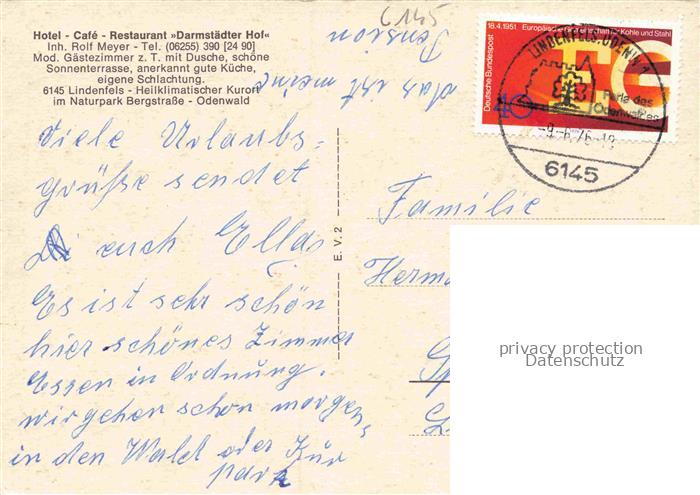 Hotel - Café - Restaurant »Darmstädter Hof«
Inh. Rolf Meyer - Tel. (06255) 390 [24 90]
Mod. Gästezimmer z. T. mit Dusche, schöne
Sonnenterrasse, anerkannt gute Küche,
eigene Schlachtung.
6145 Lindenfels - Heilklimatischer Kurort
im Naturpark Bergstraße - Odenwald
das ist meine
Pension
Viele Urlaubs=
grüße sendet
euch Ella
Es ist sehr schön
hier schönes Zimmer
Essen in Ordnung.
wir gehen schon morgens
in den Wald oder Kur
park
E. V. 2
6145
18.4.1951 Europäische Gemeinschaft für Kohle und Stahl
Deutsche Bundespost
40
LINDENFELS, ODENW 1
Perle des
Odenwaldes
-9.-6.76-18
6145
Familie
Herma
privacy protection
Datenschutz